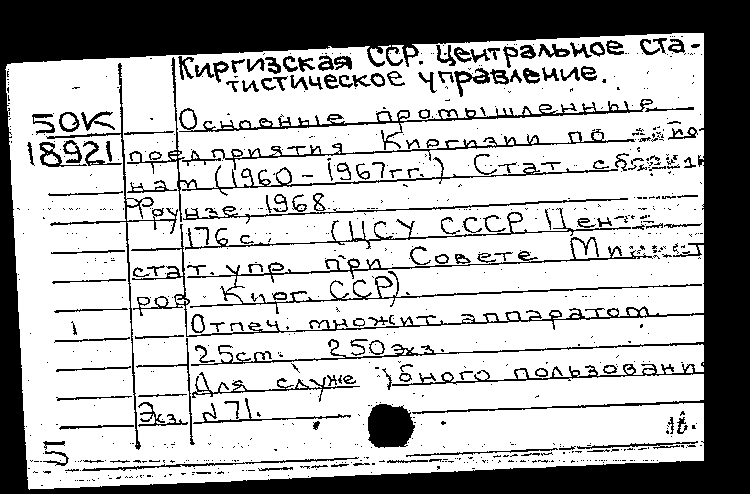 Киргизская ССР. Центральное ста-
тистическое управление.
50К
18921
Основные промышленные
предприятия Киргизии по
нам (1960-1967гг.). Стат. сборник
Фрунзе, 1968.
176 с. (ЦСУ СССР. Центр.
стат. упр. при Совете Минист
ров Кирг. ССР).
Отпеч. множит. аппаратом.
25см. 250экз.
Для служебного пользования
Экз. №71.
5